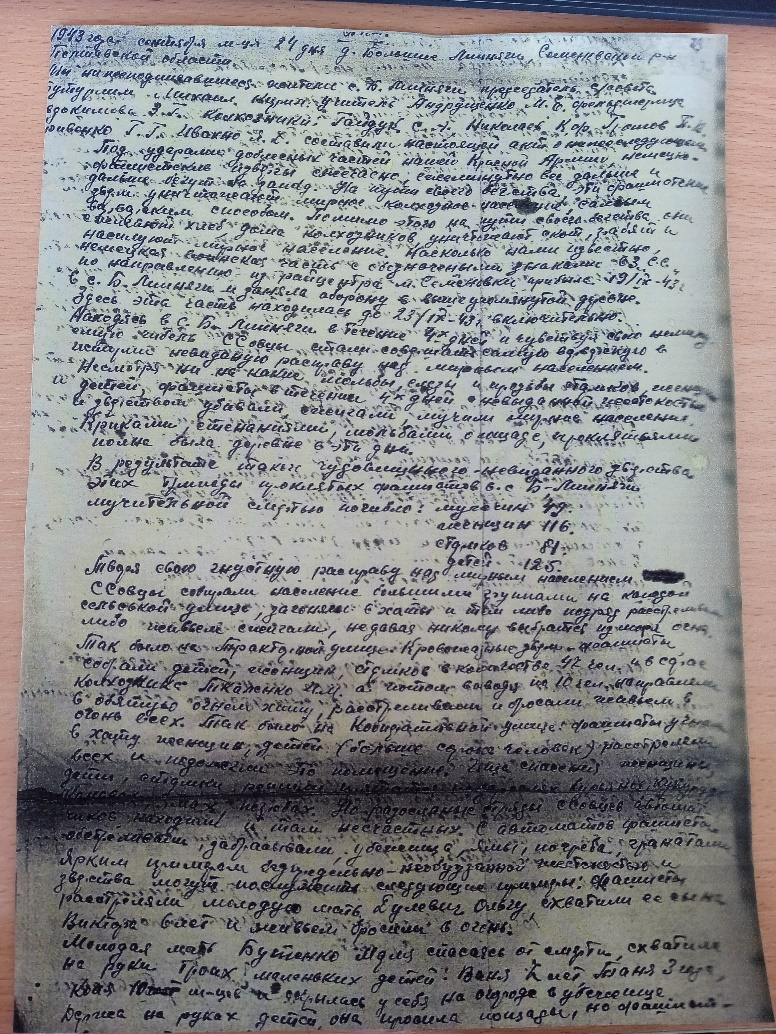 1943 года сентября м-ца 24 дня д. Большие Липняги, Семеновский р-н
Полтавской области.
Мы нижеподписавшиеся жители с. Б. Липняги председатель с/совета
Михаил, учитель Андрющенко М. Е. фельдшерица
З. Г. колхозники: Гайдук С. А. Николаев К. Ф.
Г. Г. Ивахно Я. Е. составили настоящий акт о нижеследующем
Под ударами доблестных частей нашей Красной Армии, немецко-
фашистские изверги спешно, ежеминутно все дальше и
дальше бегут на запад. На пути своего бегства эти
звери уничтожают мирное колхозное население самым
способом. Помимо этого на пути своего бегства они
сжигают хлеб дома колхозников уничтожают скот, грабят и
насилуют мирное население. Насколько нами известно,
немецкая воинская часть с обозначенными знаками СС
по направлению из райцентра м. Семеновки прибыла 19/IX-43г.
в с. Б. Липняги и заняла оборону в вышеупомянутой деревне.
Здесь эта часть находилась до 23/IX-43г. включительно.
Находясь в с. Б. Липняги в течение 4х дней и чувствуя свою
гибель ССовцы стали совершать самую в
истории невиданную расправу над мирным населением.
Несмотря ни на какие мольбы, слезы и просьбы стариков,
и детей, фашисты в течении 4х дней с невиданной жестокостью
и зверством убивали, сжигали, мучили мирное население.
Криками, стенаниями мольбами о пощаде, проклятьями
полна была деревня в эти дни.
В результате такого чудовищного невиданного зверства
этих проклятых фашистов в с. Б-Липняги
мучительной смертью погибло: мужчин 49.
женщин 116.
стариков 81.
детей 125.
Творя свою гнусную расправу над мирным населением
ССовцы собирали население большими группами на каждой
сельской улице, загоняли в хаты и там либо подряд расстреливали
либо живьем сжигали, не давая никому выбраться из огня.
Так было на Тракторной улице. Кровожадные звери-фашисты,
собрали детей, женщин, стариков в количестве 42 чел. и в сарае
колхозника Ткаченко а потом по 10 чел. направляли
в объятую огнем хату, расстреливали и бросали живьем в
огонь всех. Так было на Кооперативной улице: фашисты
в хату женщин, детей (больше сорока человек) расстреляли
всех и подожгли это помещение. Ища спасения женщины,
дети, старики
ямах погребах. Но автомат-
чиков находили и там несчастных. С автоматов фашисты
обстреливали, забрасывали, убежища, ямы, погреба, гранатами
Ярким примером беспредельно-необузданной жестокости и
зверства могут послужить следующие примеры: Фашисты
расстреляли молодую мать Гулович Ольгу схватили ее сына
Виктора лет и живьем бросили в огонь.
Молодая мать Бутенко спасаясь от смерти, схватила
на руки троих маленьких детей: Ваня лет Таня 3 года,
Коля м-цев и скрылась у себя на огороде в убежище
Держа на руках детей, она просила пощады, но фашист-